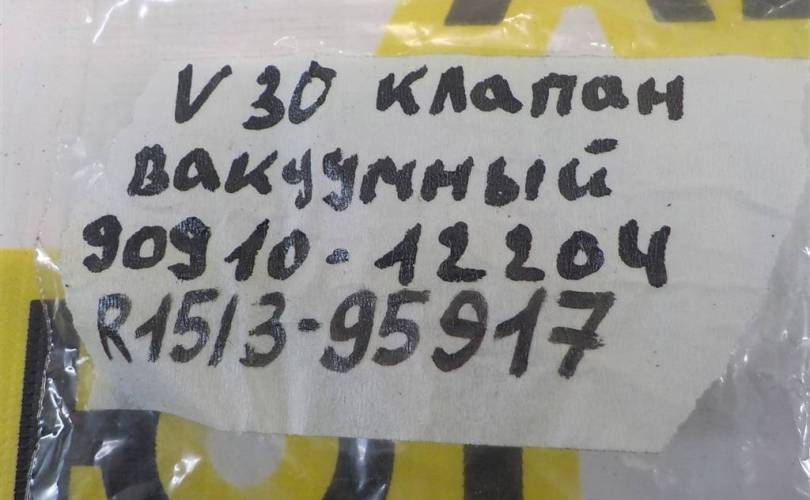 V 30 клапан
вакуумный
90910-12204
R15/3-95917